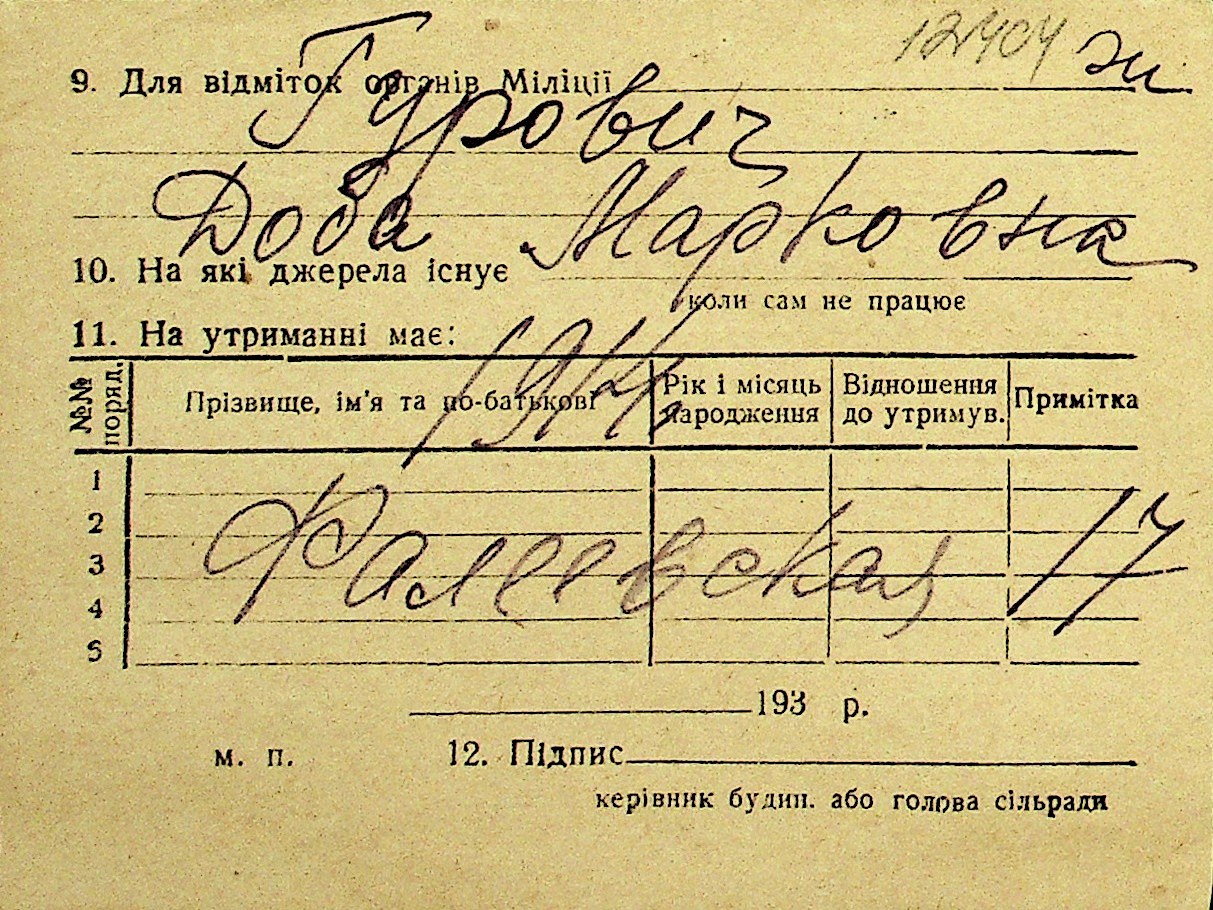 12404 жи
9. Для відміток органів Міліції
Гурович
Доба Марковна
10. На які джерела існує
коли сам не працює
11. На утриманні має:
1914
№№ поряд. Прізвище, ім'я та по-батькові Рік і місяць народження Відношення до утримув. Примітка
1
2
Фалеевская 17
3
4
5
193 р.
м. п. 12. Підпис
керівник будин. або голова сільради